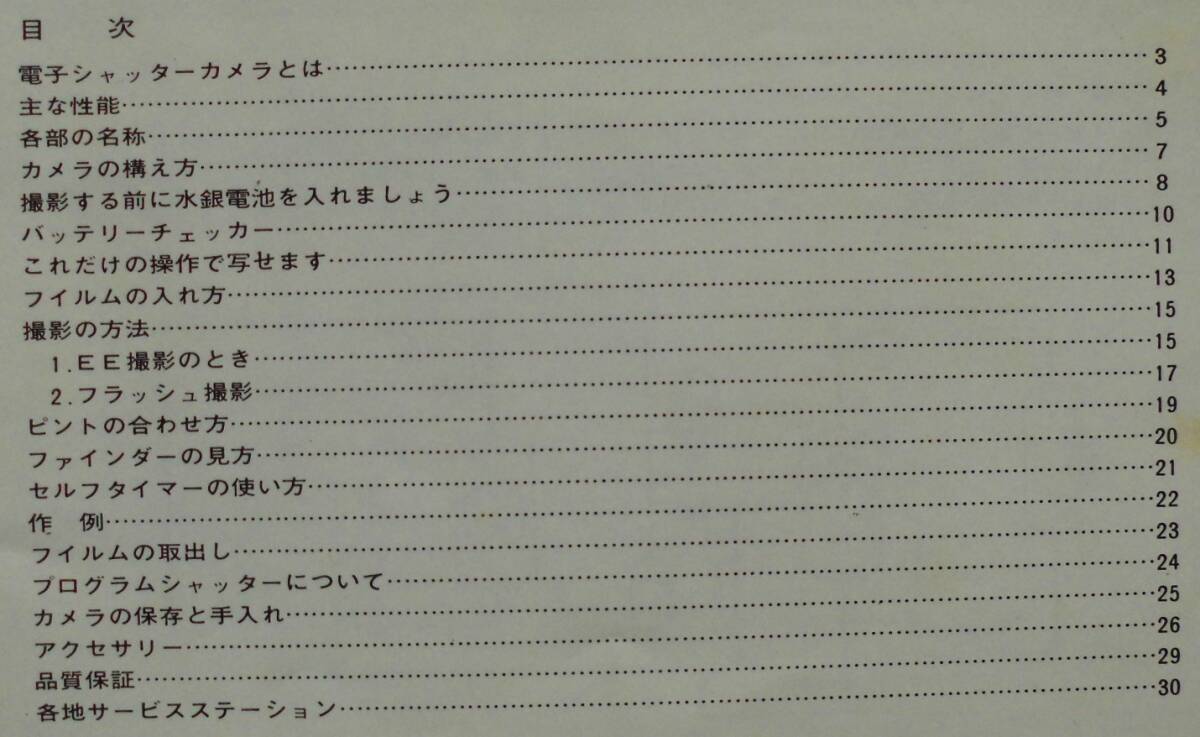 目　次
電子シャッターカメラとは……………3
主な性能……………4
各部の名称……………5
カメラの構え方……………7
撮影する前に水銀電池を入れましょう……………8
バッテリーチェッカー……………10
これだけの操作で写せます……………11
フイルムの入れ方……………13
撮影の方法……………15
1.ＥＥ撮影のとき……………15
2.フラッシュ撮影……………17
ピントの合わせ方……………19
ファインダーの見方……………20
セルフタイマーの使い方……………21
作　例……………22
フイルムの取出し……………23
プログラムシャッターについて……………24
カメラの保存と手入れ……………25
アクセサリー……………26
品質保証……………29
各地サービスステーション……………30